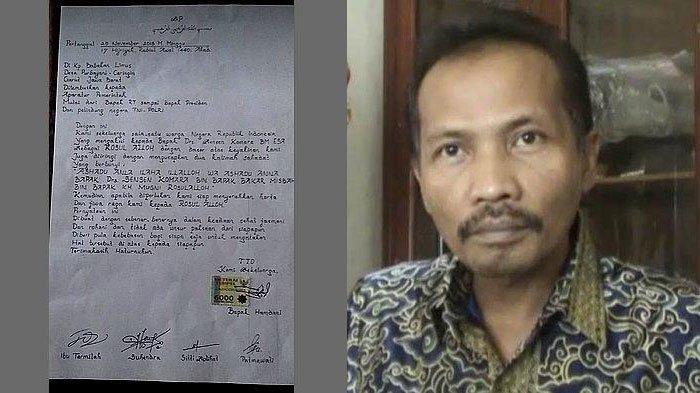 Pertanggal 25 November 2018 M. Minggu
17 Hijriyah, Rabiul Awal 1440, Ahad
Di Kp. Babakan Limus
Desa Purbayani - Caringin
Garut Jawa Barat
Ditembuskan kepada
Aparatur Pemerintah
Mulai dari Bapak RT sampai Bapak Presiden
Dan pelindung negara TNI-POLRI
Dengan ini
Kami sekeluarga salah satu warga Negara Republik Indonesia
Yang mengakui kepada Bapak Drs Sensen Komara BM ESA
Sebagai ROSUL ALLOH dengan dasar atas keyakinan kami
Juga diiringi dengan mengucapkan dua kalimah sahadat
Yang berbunyi
"ASHADU ANLA ILAHA ILALLOH WA ASHADU ANNA
BAPAK Drs SENSEN KOMARA BIN BAPAK BAKAR MISBAH
BIN BAPAK KH MUSNI ROSULALLOH
Kemudian apabila diperlukan kami siap menyerahkan harta
Dan jiwa raga kami kepada ROSUL ALLOH
Pernyataan ini
Dibuat dengan sebenar-benarnya dalam keadaan sehat jasmani
Dan rohani dan tidak ada unsur paksaan dari siapapun
Diberi pula kebebasan bagi siapa saja untuk mengatakan
Hal tersebut di atas kepada siapapun
Terimakasih Haturnuhun
TTD
Kami Sekeluarga,
METERAI
TEMPEL
6000
Bapak Hamdani
Ibu Tarmilah Suhendra Sitti Patmawati